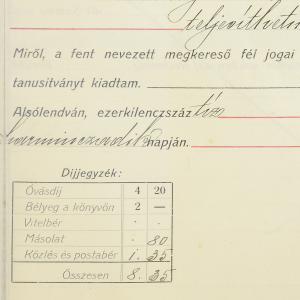 teljesíthetem
Miről, a fent nevezett megkereső fél jogai
tanusitványt kiadtam.
Alsólendván, ezerkilenczszáz tíz
harminczadik napján.
Díjjegyzék:
Óvásdíj 4 20
Bélyeg a könyvön 2 —
Vitelbér · ·
Másolat · 80
Közlés és postabér 1. 35
Összesen 8. 35